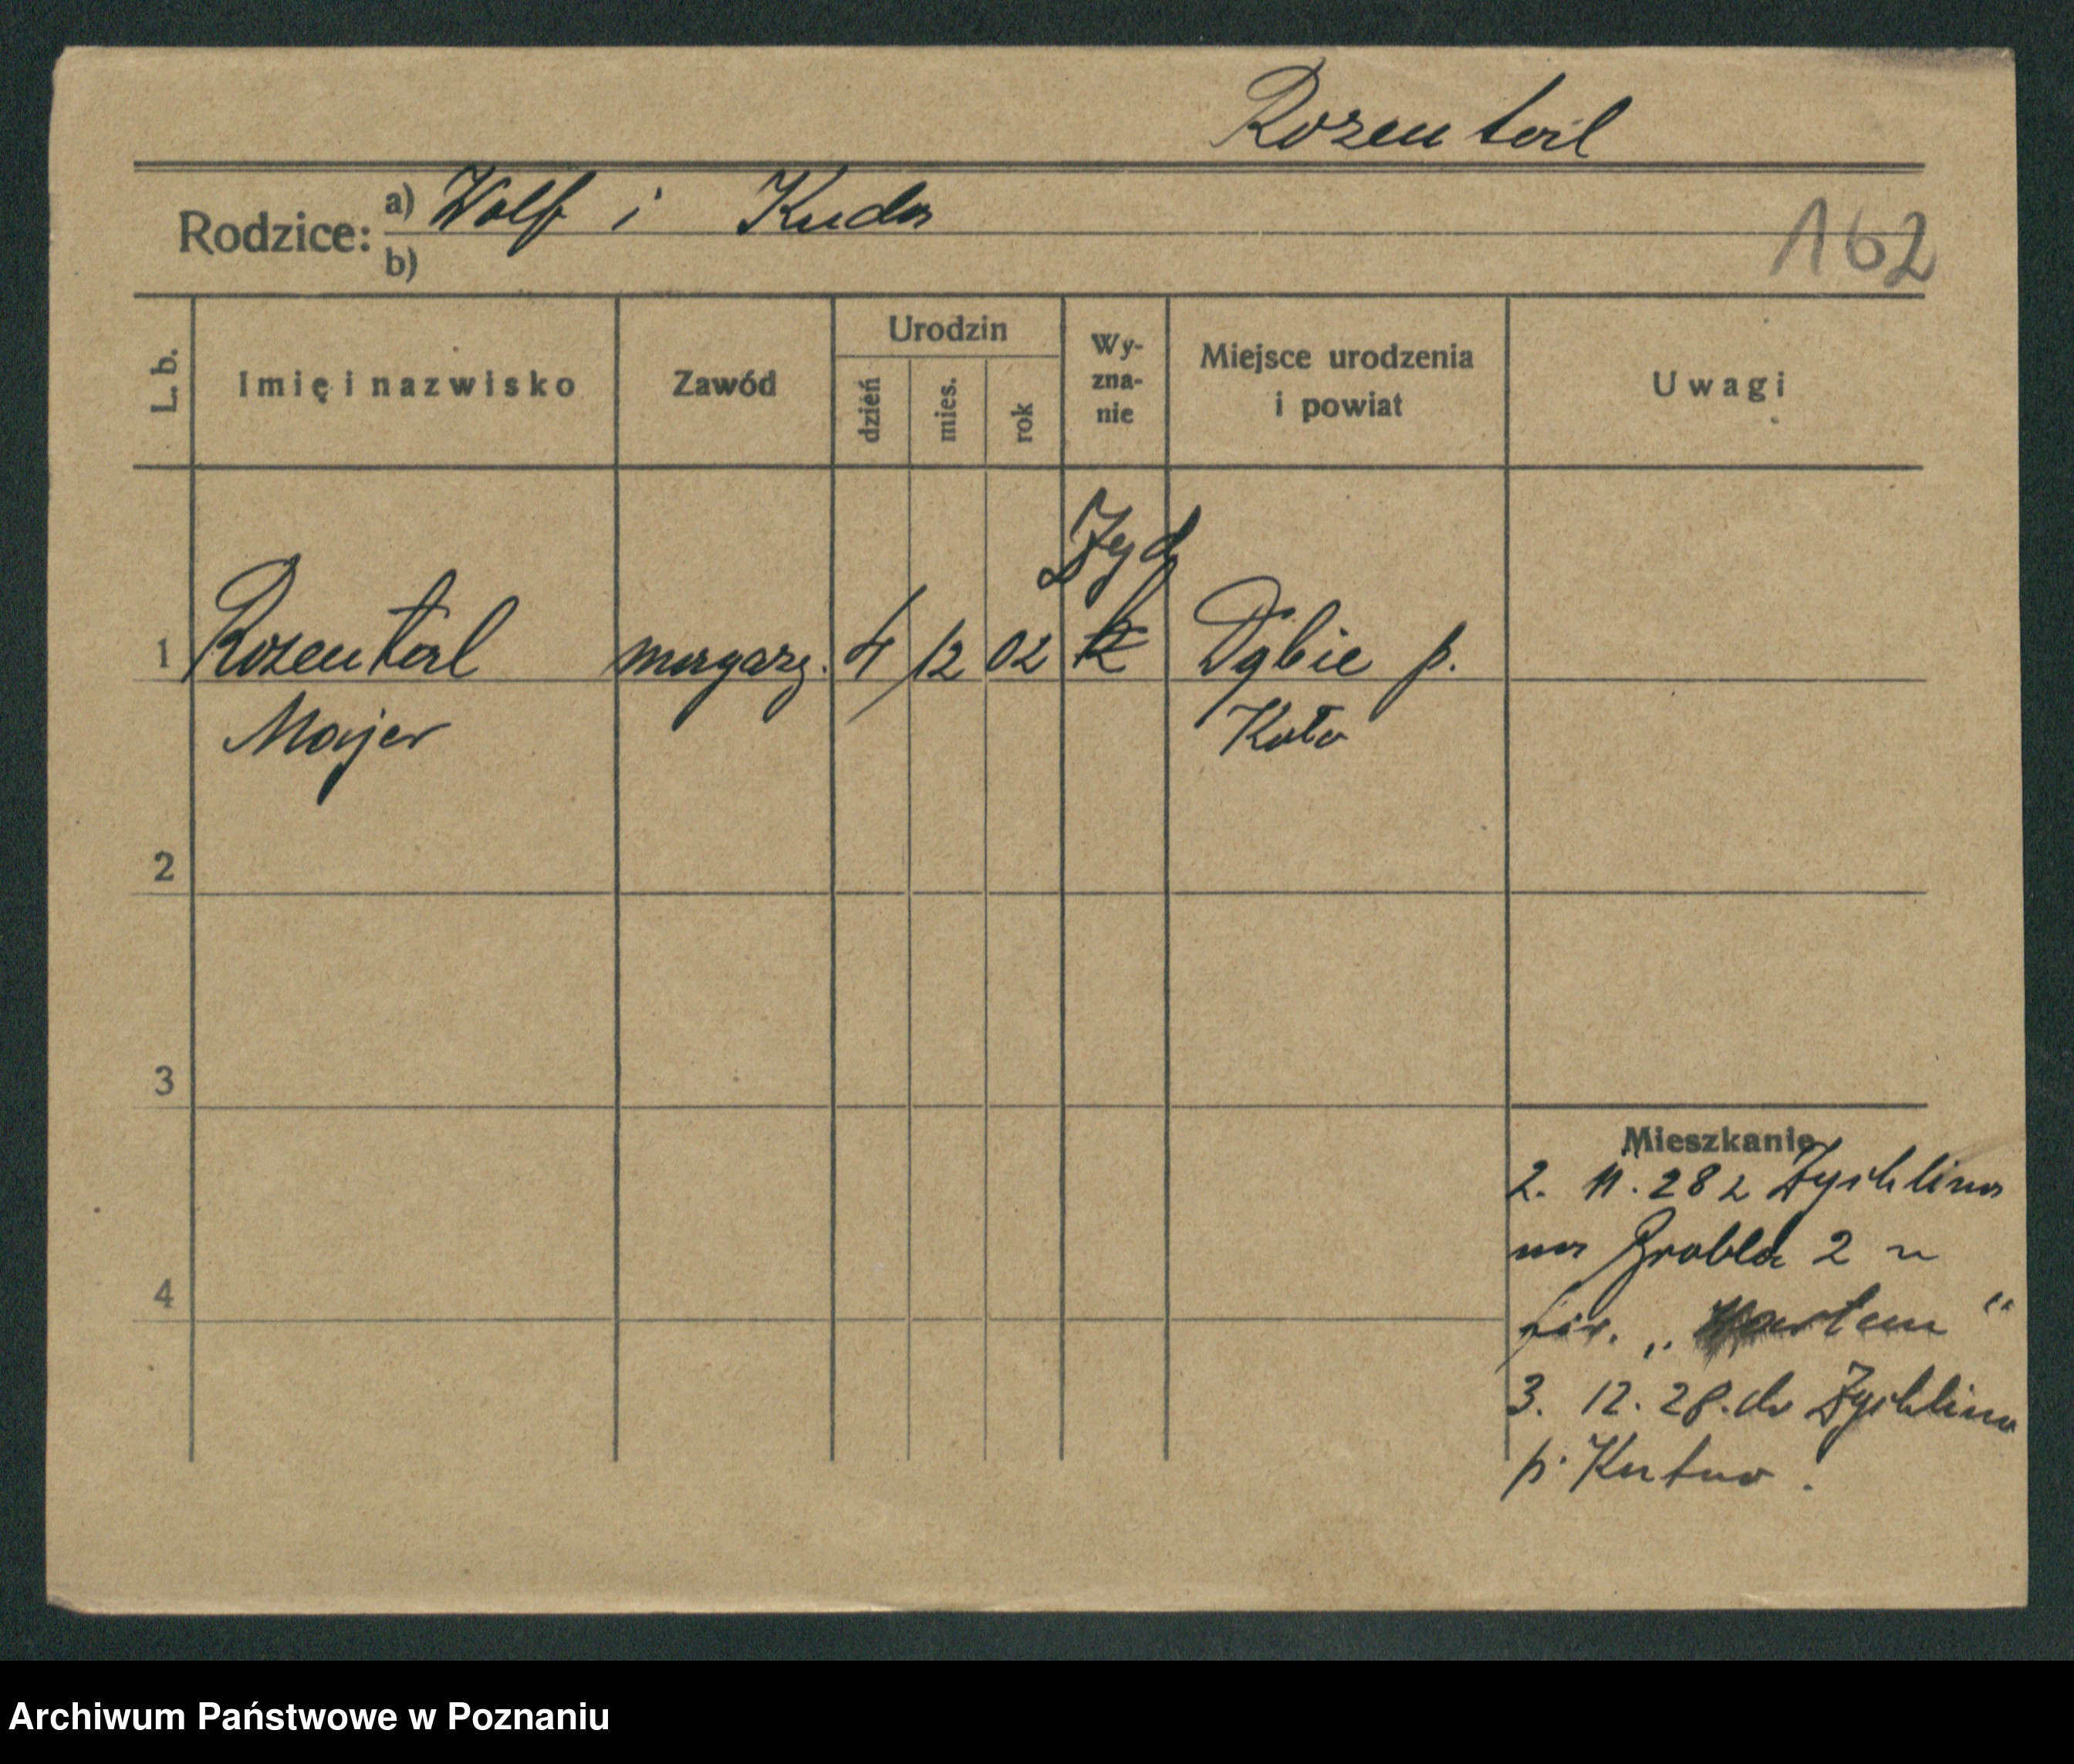 Rozental
Rodzice: a) Wolf i Ruda
b)
162
L. b.
Imię i nazwisko
Zawód
Urodzin
dzień
mies.
rok
Wy-
zna-
nie
Miejsce urodzenia
i powiat
Uwagi
Żyd
1 Rozental magaz. 4 12 02 Dąbie p.
Majer Koło
2
3
4
Mieszkanie
2. 11. 28 z Żychlina
na Grobla 2 u
fir. „ "
3. 12. 28. do Żychlina
p. Kutno.
Archiwum Państwowe w Poznaniu